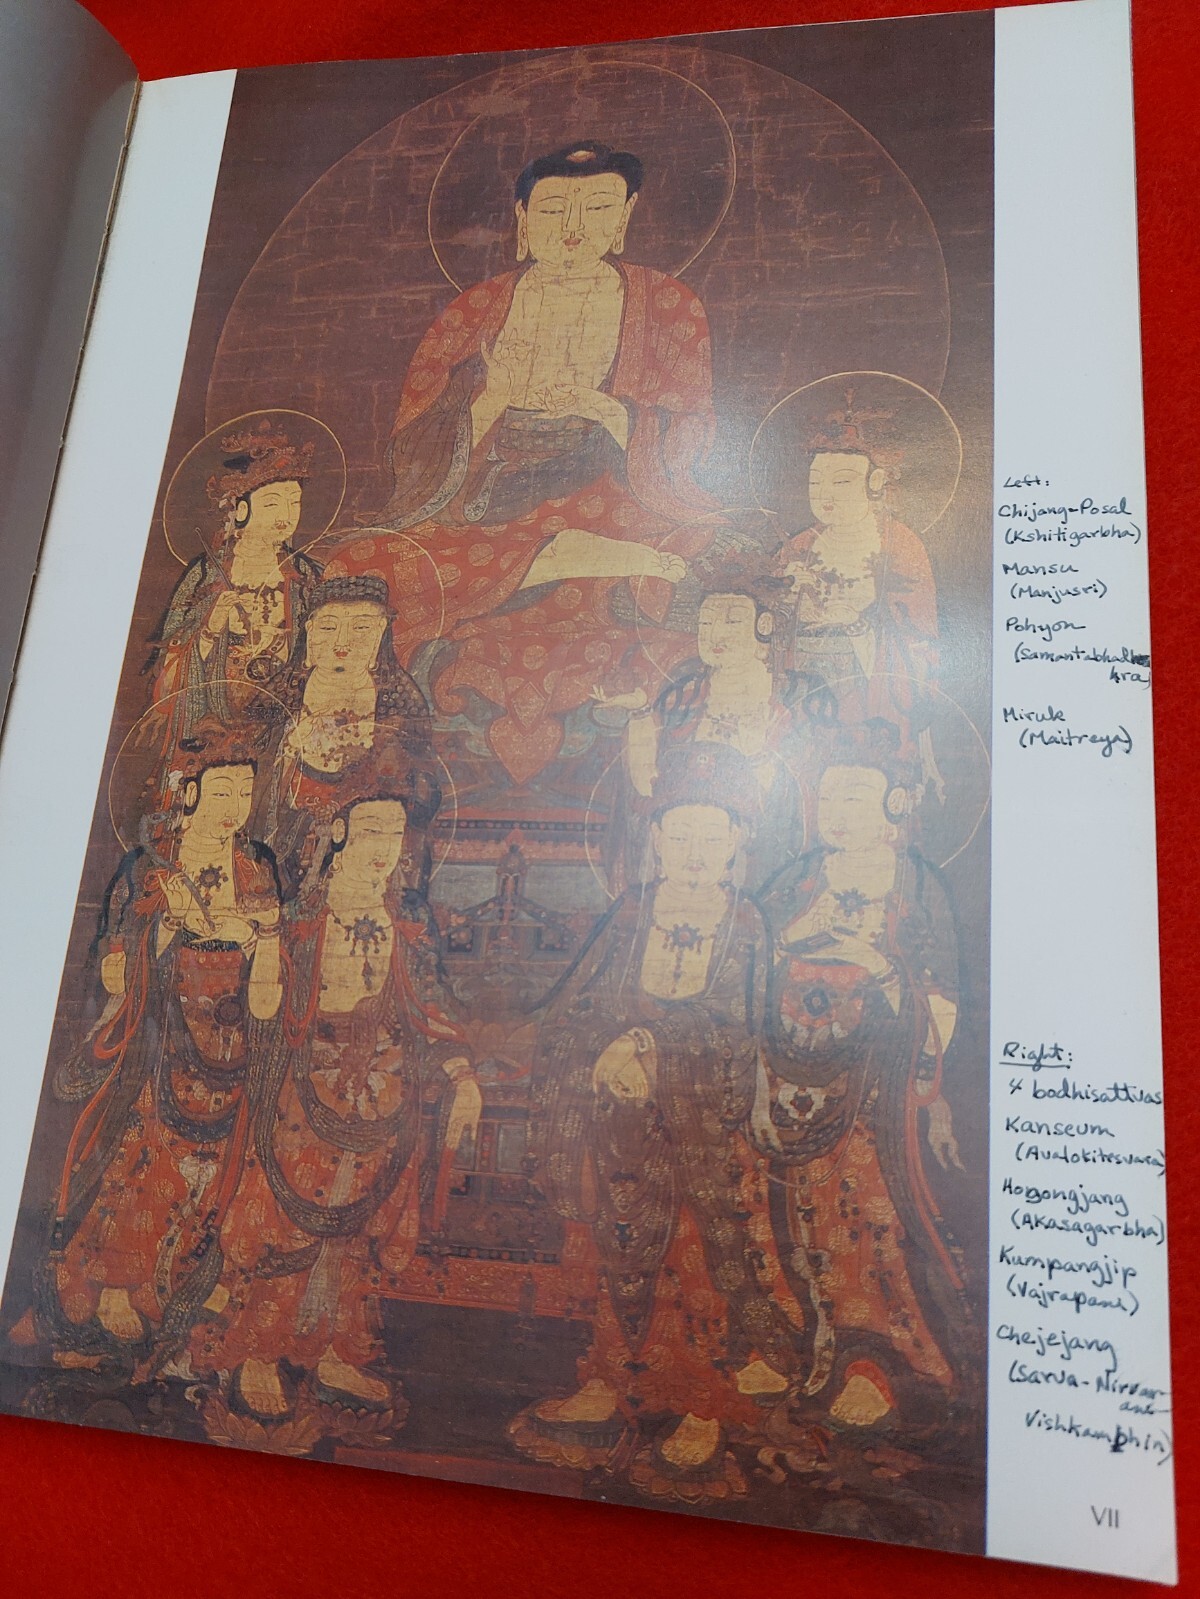 Left:
Chijang-Posal
(Kshitigarbha)
Mansu
(Manjusri)
Pohyon
(Samantabhad
hra)
Miruk
(Maitreya)
Right:
4 bodhisattvas
Kanseum
(Avalokitesvara)
Hogongjang
(Akasagarbha)
Kumpangjip
(Vajrapani)
Chejejang
(Sarva-Nirvar-
ana-
Vishkambhin)
VII